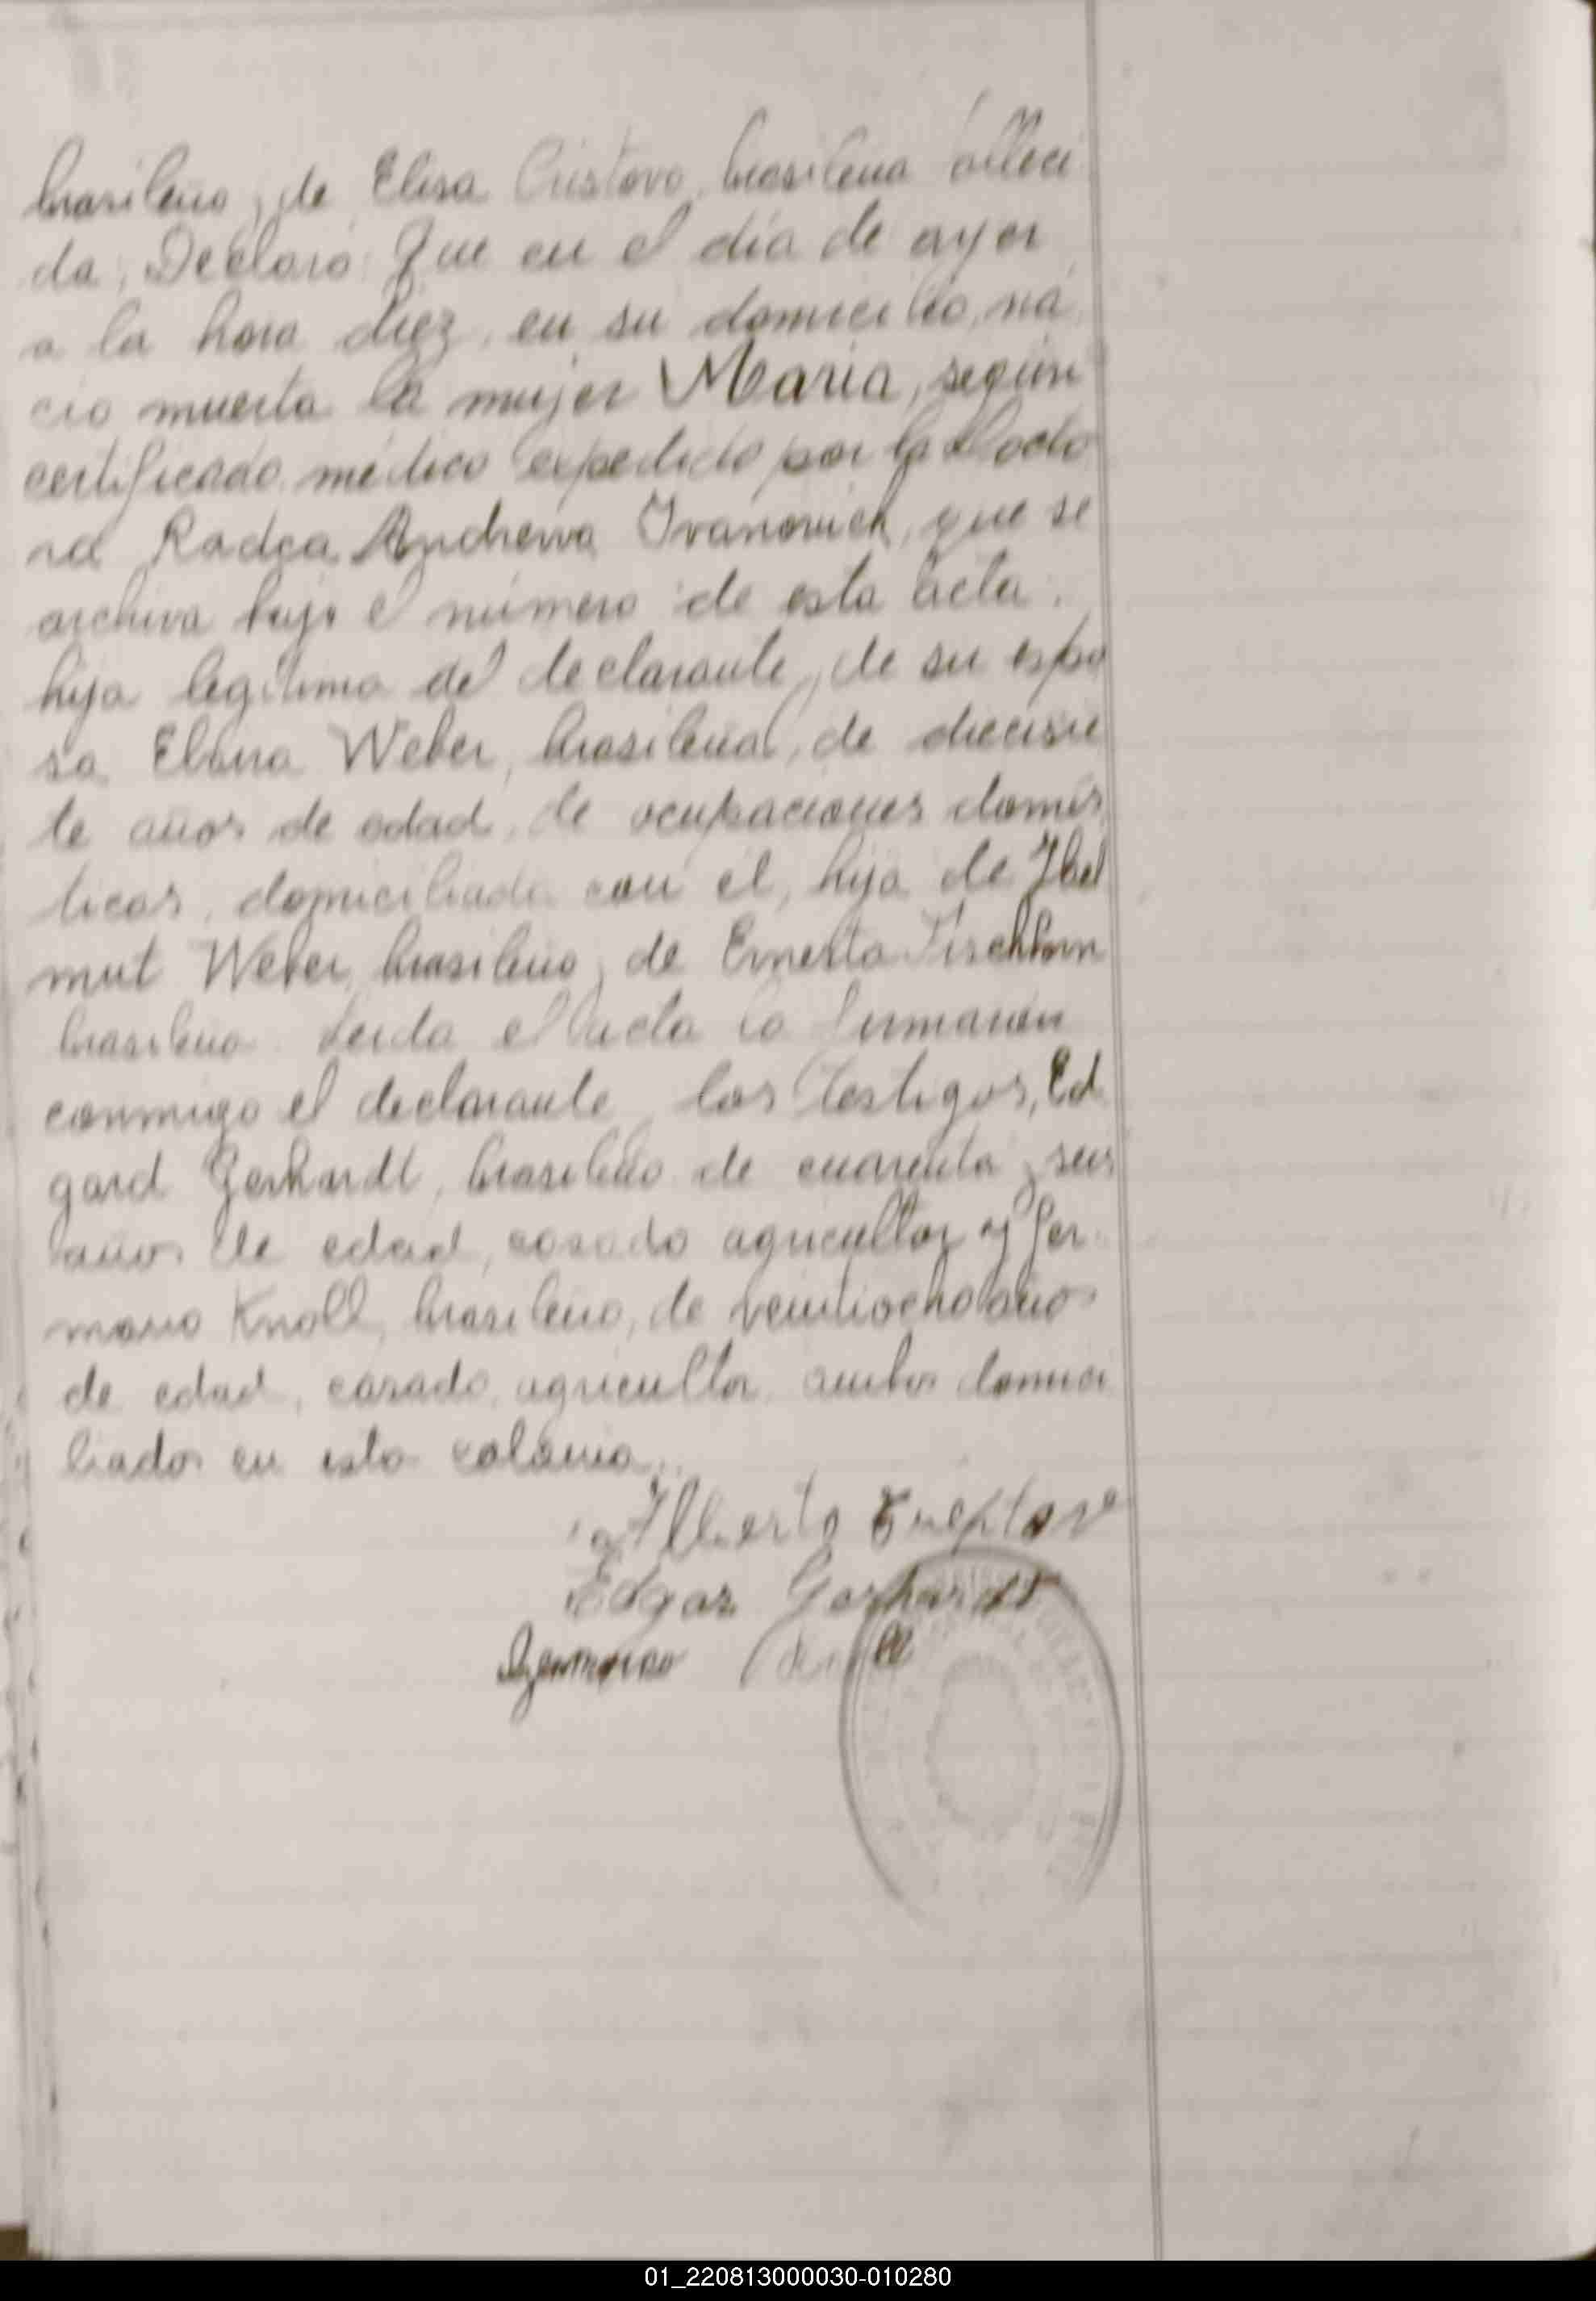 brasileño y de Elisa Cristovo, brasileña falleci
da, Declaró: Que en el día de ayer
a la hora diez, en su domicilio, na
ció muerta la mujer María, según
certificado médico expedido por la docto
ra Radca Andrewa Ivanovich, que se
archiva bajo el número de esta acta.
hija legítima del declarante y de su espo
sa Elvira Weber, brasileña, de diecisie
te años de edad, de ocupaciones domés
ticas, domiciliada con él, hija de Hel
mut Weber, brasileño y de Ernesta Tischhorn
brasileña. Leída el acta la firmaron
conmigo el declarante y los testigos, Ed
gard Gerhardt, brasileño de cuarenta y seis
años de edad, casado agricultor y Ger
mano Knoll, brasileño, de veintiocho años
de edad, casado, agricultor ambos domici
liados en esta colonia.
Alberto
Edgar Gerhardt
Germano
01_220813000030-010280